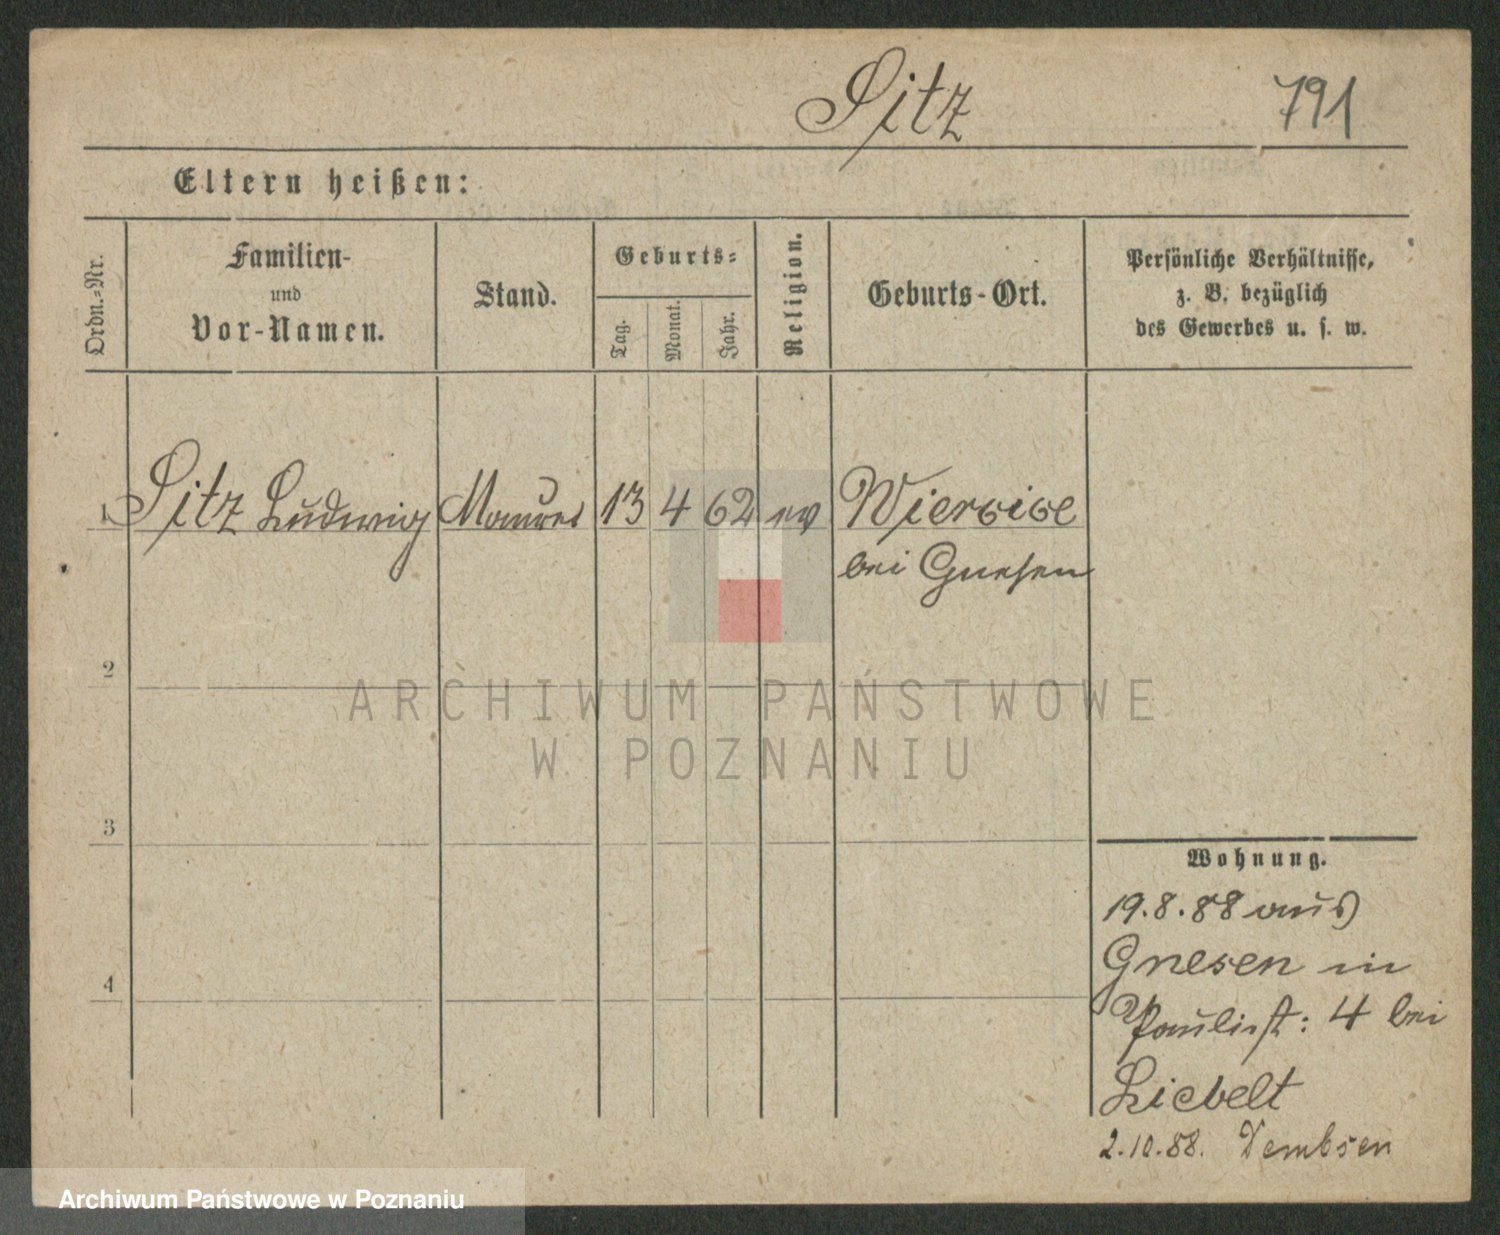 Sitz 791
Eltern heißen:
Ordn.-Nr.
Familien-
und
Vor-Namen.
Stand.
Geburts-
Tag.
Monat.
Jahr.
Religion.
Geburts-Ort.
Persönliche Verhältnisse,
z. B. bezüglich
des Gewerbes u. s. w.
1 Sitz Ludwig Maurer 13 4 62 ev
bei Gnesen
2
3
4
Wohnung.
19.8.88 aus
Gnesen in
Paulist: 4 bei
Liebelt
2.10.88. Dembsen
ARCHIWUM PAŃSTWOWE
W POZNANIU
Archiwum Państwowe w Poznaniu